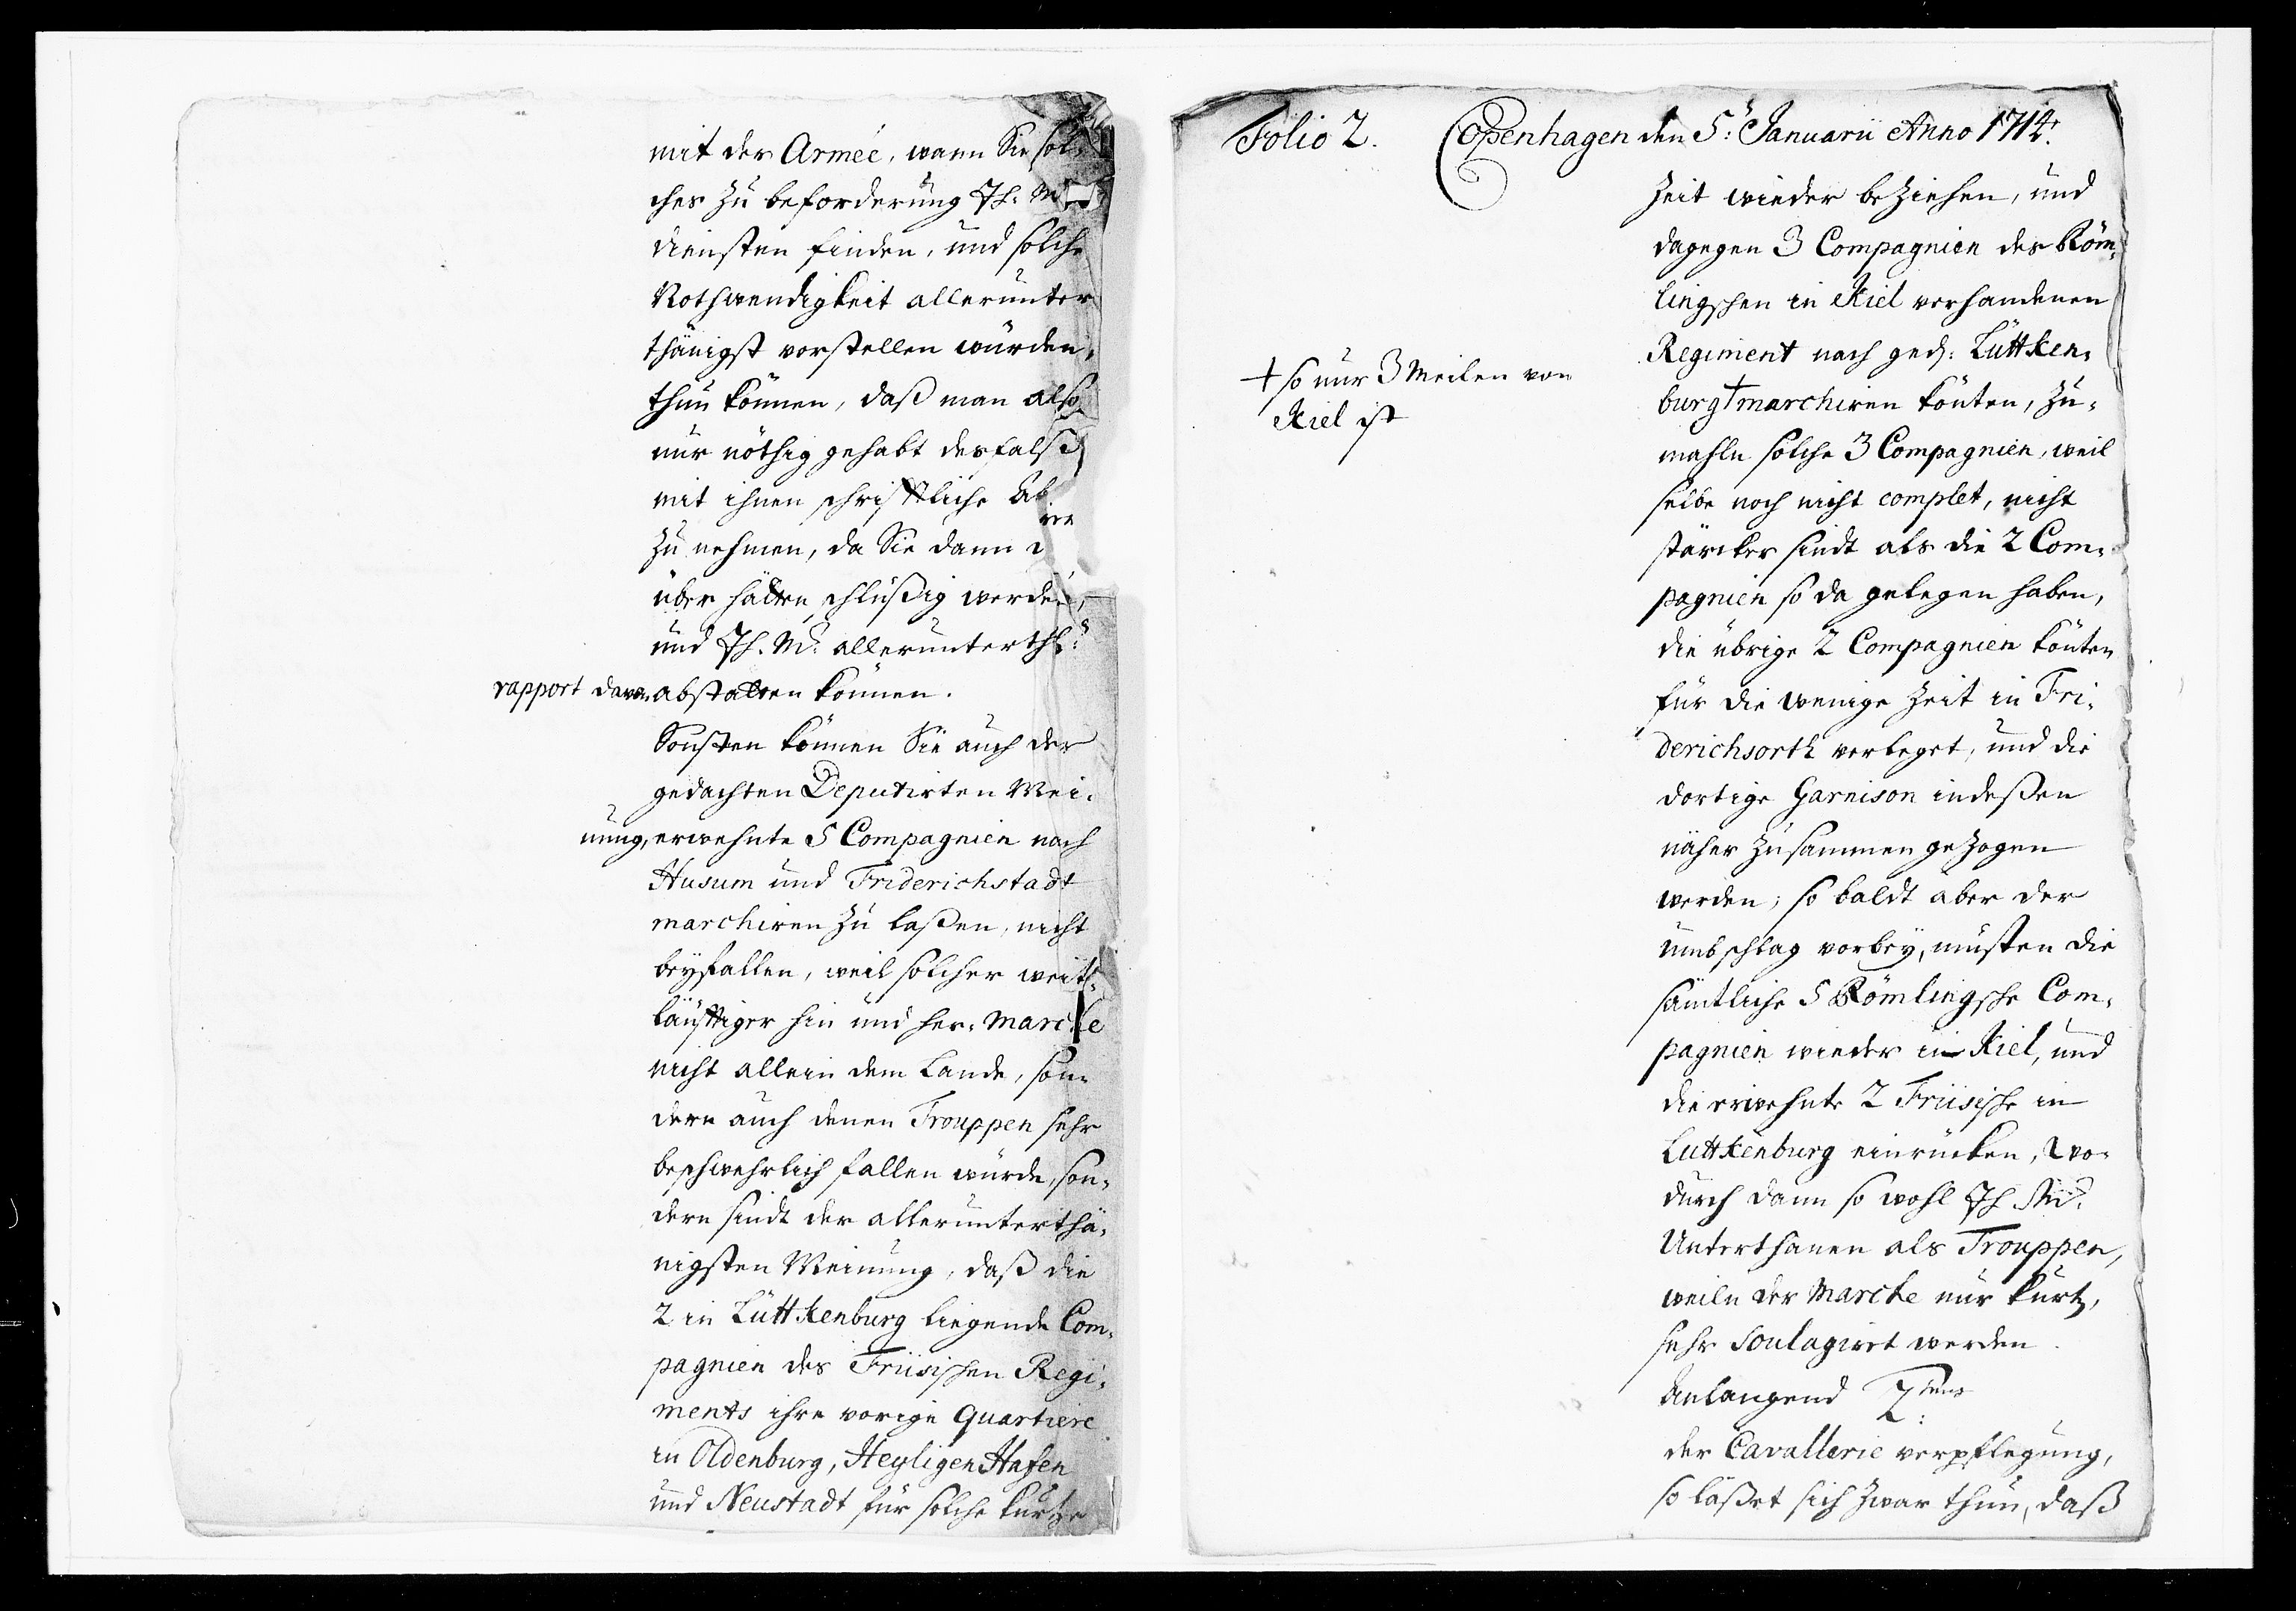 mit der Armée, wann Sie sol-
ches zu beforderung Ih: M
diensten finden, und solche
Nothwendigkeit allerunter
thänigst vorstellen würden,
thun können, daß man also
nur nöthig gehabt desfalß
mit ihnen schrifftliche Ab
zu nehmen, da Sie dann
über hätten schlüßig werden,
und Ih. M: allerunterth:
rapport davon abstatten können.
Sonsten können Sie auch der
gedachten Deputirten Mei-
nung, erwehnte 5 Compagnien nach
Husum und Friderichstadt
marchiren zu laßen, nicht
beyfallen, weil solcher weit-
läufftiger hin und her-Marche
nicht allein dem Lande, son-
dern auch denen Trouppen sehr
beschwehrlich fallen würde, son-
dern sindt der allerunterthä-
nigsten Meinung, daß die
2 in Lüttkenburg liegende Com-
pagnien des Friisischen Regi-
ments ihre vorige Quartiere
in Oldenburg, Heyligen Hafen
und Neustadt für solche kurtze
Folio 2. Copenhagen den 5: Januarii Anno 1714.
Zeit wieder beziehen, und
dagegen 3 Compagnien des Röm-
lingschen in Kiel verhandenen
Regiment nach ged: Lüttken-
burg † marchiren könten, zu-
† so nur 3 Meilen von
Kiel ist
mahln solche 3 Compagnien, weil
selbe noch nicht complet, nicht
stärcker sindt als die 2 Com-
pagnien so da gelegen haben,
die übrige 2 Compagnien könten
für die wenige Zeit in Fri-
derichsorth verleget, und die
dortige Garnison indeßen
näher zusammen gezogen
werden; so baldt aber der
Umbschlag vorbey, müsten die
sämtliche 5 Römlingsche Com-
pagnien wieder in Kiel, und
die erwehnte 2 Friisische in
Luttkenburg einrücken, wo-
durch dann so wohl Ih M:
Unterthanen als Trouppen,
weiln der Marche nur kurtz,
sehr soulagiret werden.
Anlangend 2tens
der Cavallerie verpflegung,
so läßet sich zwar thun, daß